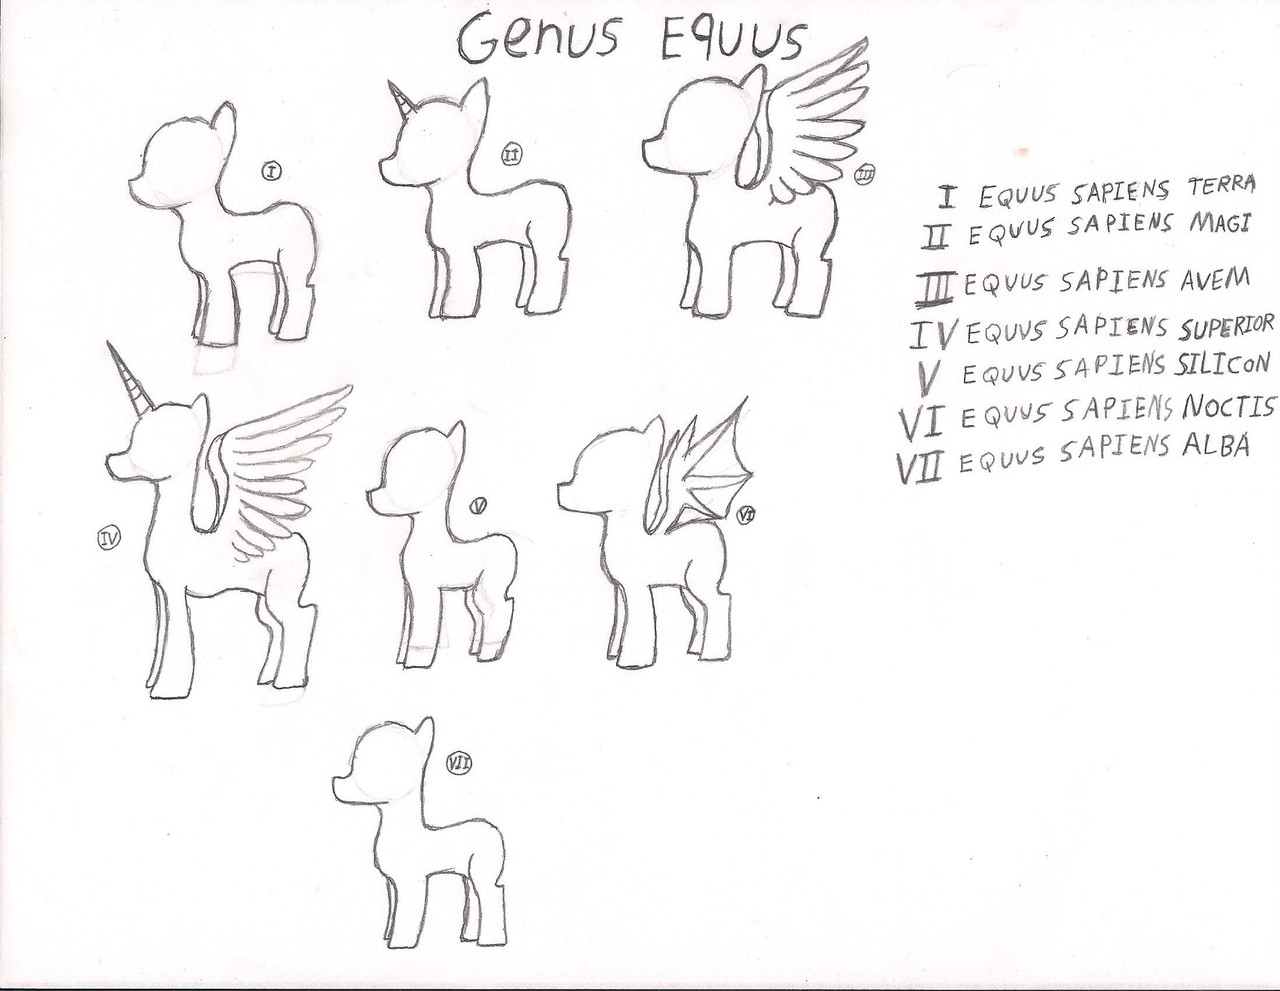 Genus Equus
I
II
III
I EQUUS SAPIENS TERRA
II EQUUS SAPIENS MAGI
III EQUUS SAPIENS AVEM
IV EQUUS SAPIENS SUPERIOR
V EQUUS SAPIENS SILICON
VI EQUUS SAPIENS NOCTIS
VII EQUUS SAPIENS ALBA
IV
V
VI
VII